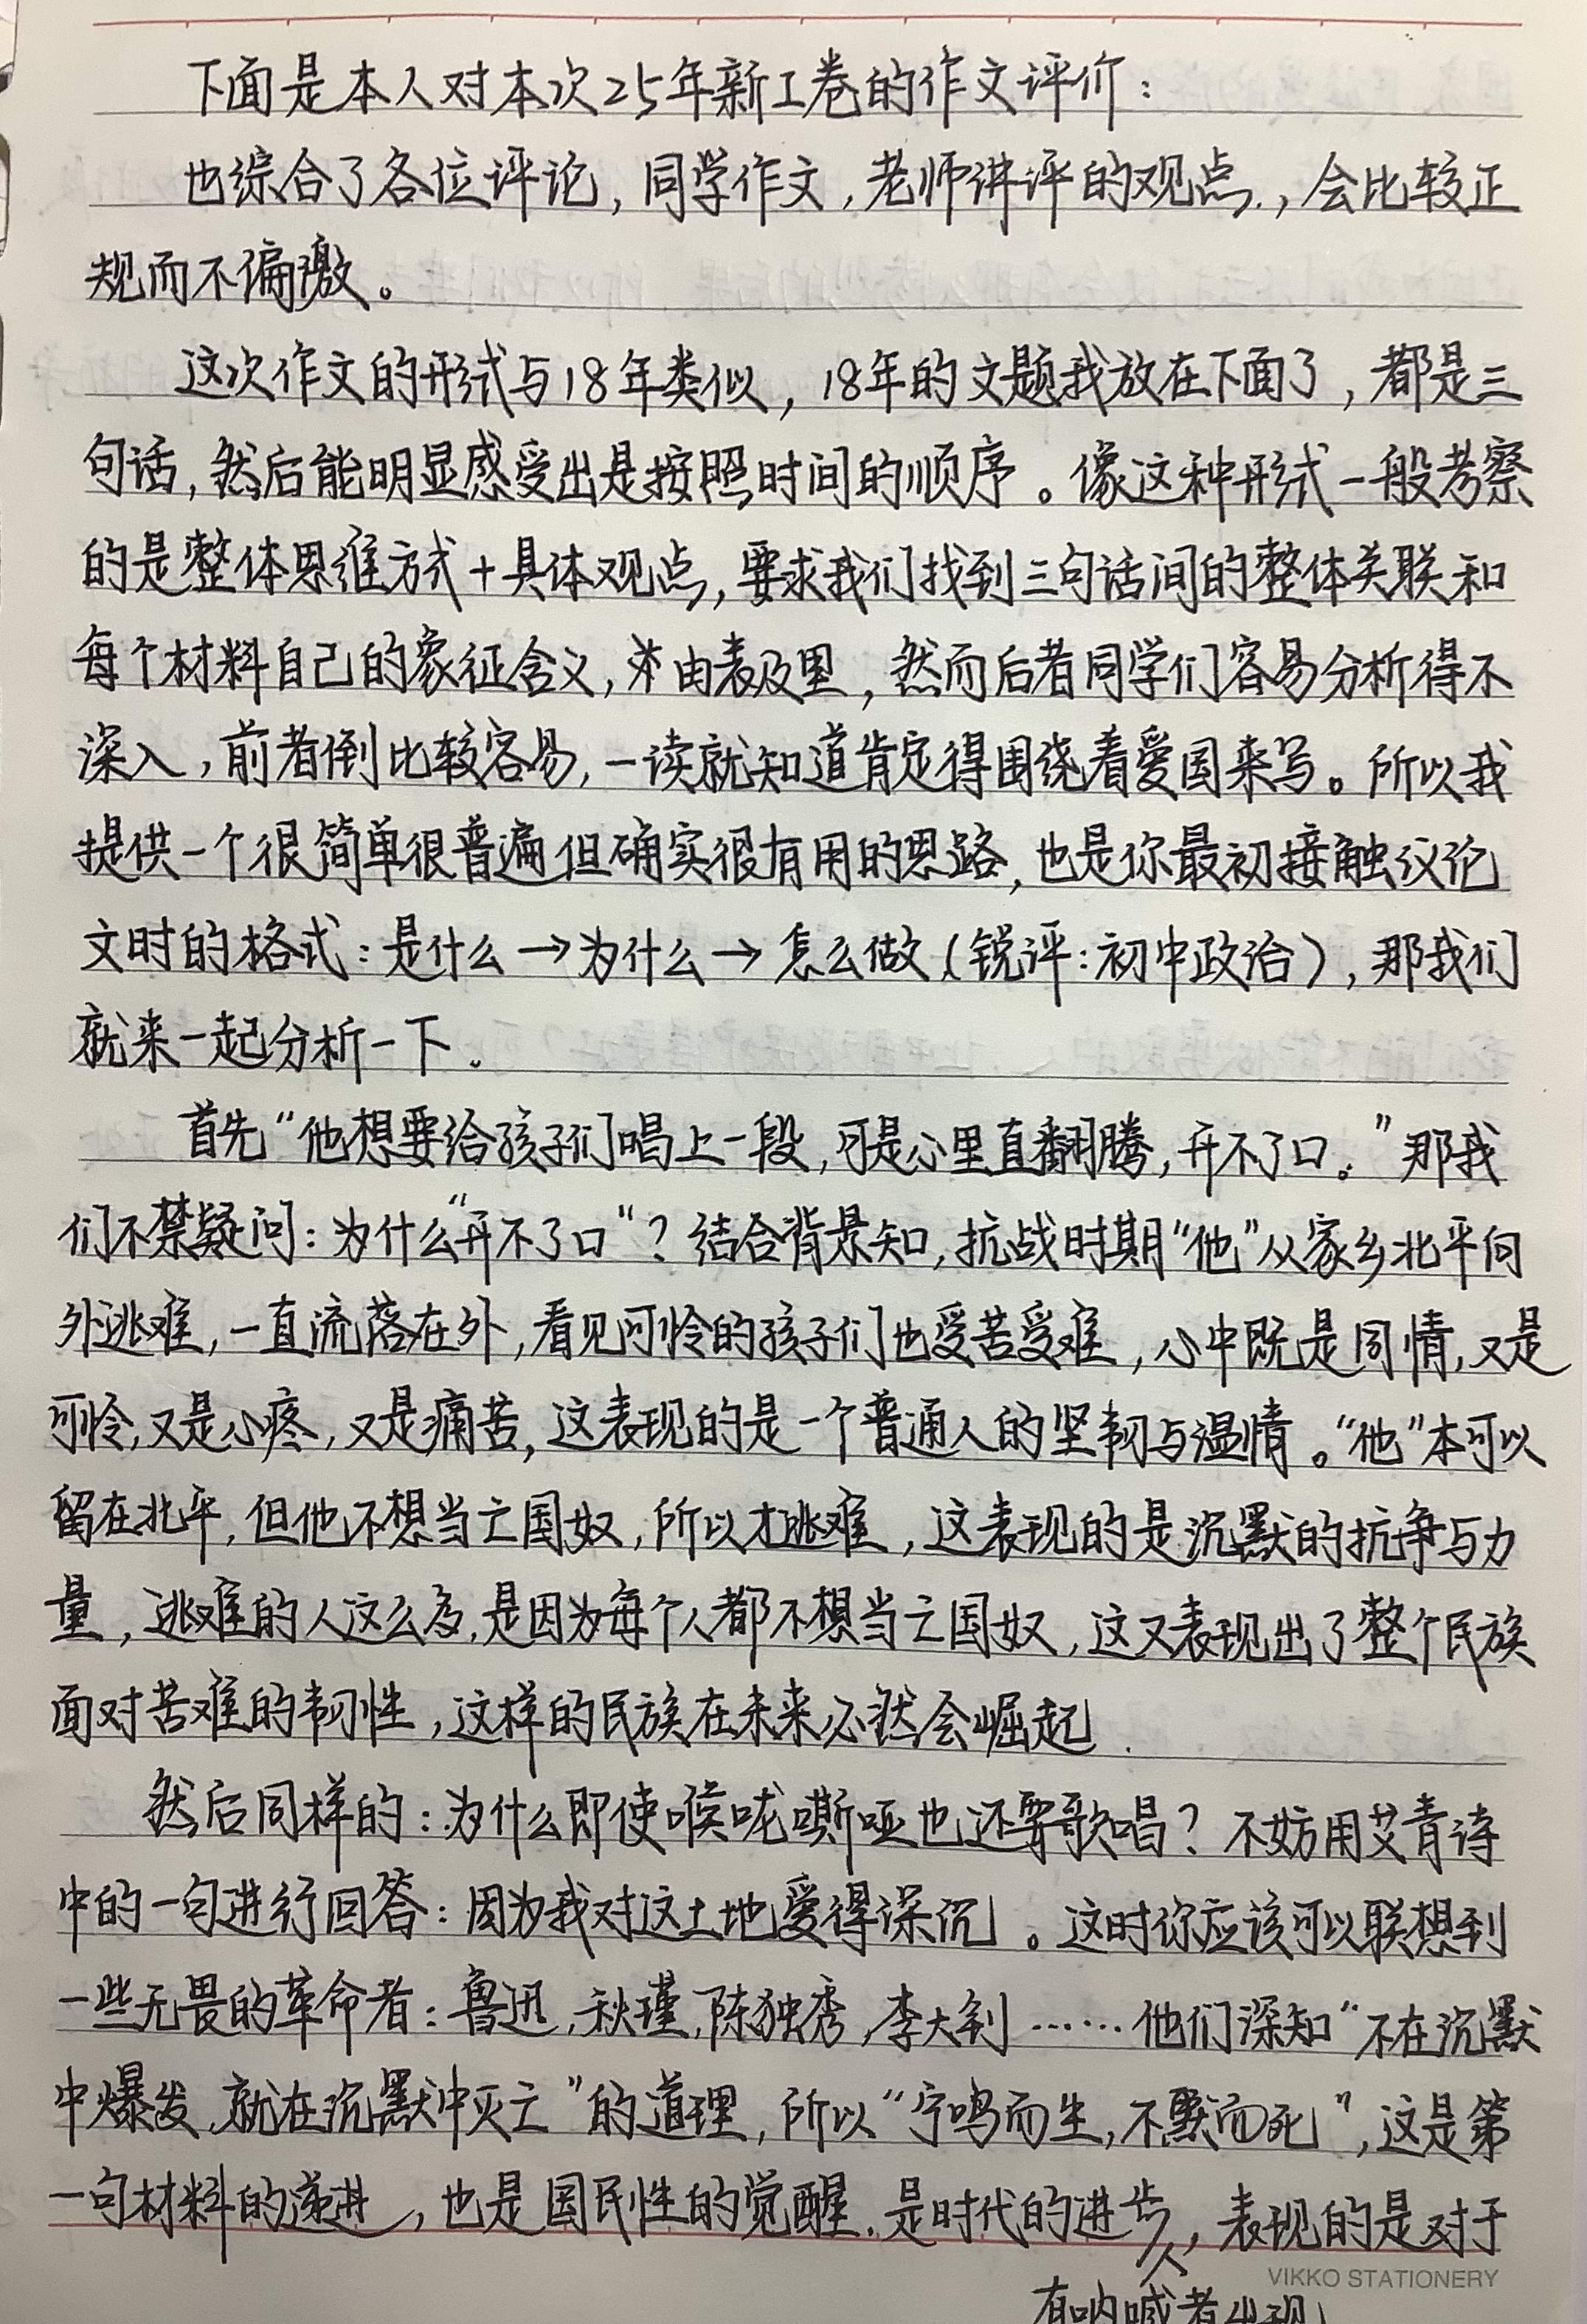 下面是本人对本次25年新I卷的作文评价：
也综合了各位评论，同学作文，老师讲评的观点，会比较正
规而不偏激。
这次作文的形式与18年类似，18年的文题我放在下面了，都是三
句话，然后能明显感受出是按照时间的顺序。像这种形式一般考察
的是整体思维方式+具体观点，要求我们找到三句话间的整体关联和
每个材料自己的象征含义，由表及里，然而后者同学们容易分析得不
深入，前者倒比较容易，一读就知道肯定得围绕着爱国来写。所以我
提供一个很简单很普遍但确实很有用的思路，也是你最初接触议论
文时的格式：是什么→为什么→怎么做（锐评：初中政治），那我们
就来一起分析一下。
首先“他想要给孩子们唱上一段，可是心里直翻腾，开不了口。”那我
们不禁疑问：为什么“开不了口”？结合背景知，抗战时期“他”从家乡北平向
外逃难，一直流落在外，看见可怜的孩子们也受苦受难，心中既是同情，又是
可怜，又是心疼，又是痛苦，这表现的是一个普通人的坚韧与温情。“他”本可以
留在北平，但他不想当亡国奴，所以才逃难，这表现的是沉默的抗争与力
量，逃难的人这么多，是因为每个人都不想当亡国奴，这又表现出了整个民族
面对苦难的韧性，这样的民族在未来必然会崛起.
然后同样的：为什么即使喉咙嘶哑也还要歌唱？不妨用艾青诗
中的一句进行回答：因为我对这土地爱得深沉。这时你应该可以联想到
一些无畏的革命者：鲁迅，秋瑾，陈独秀，李大钊……他们深知“不在沉默
中爆发，就在沉默中灭亡”的道理，所以“宁鸣而生，不默而死”，这是第
一句材料的递进，也是国民性的觉醒，是时代的进步，表现的是对于
有呐喊者出现
VIKKO STATIONERY